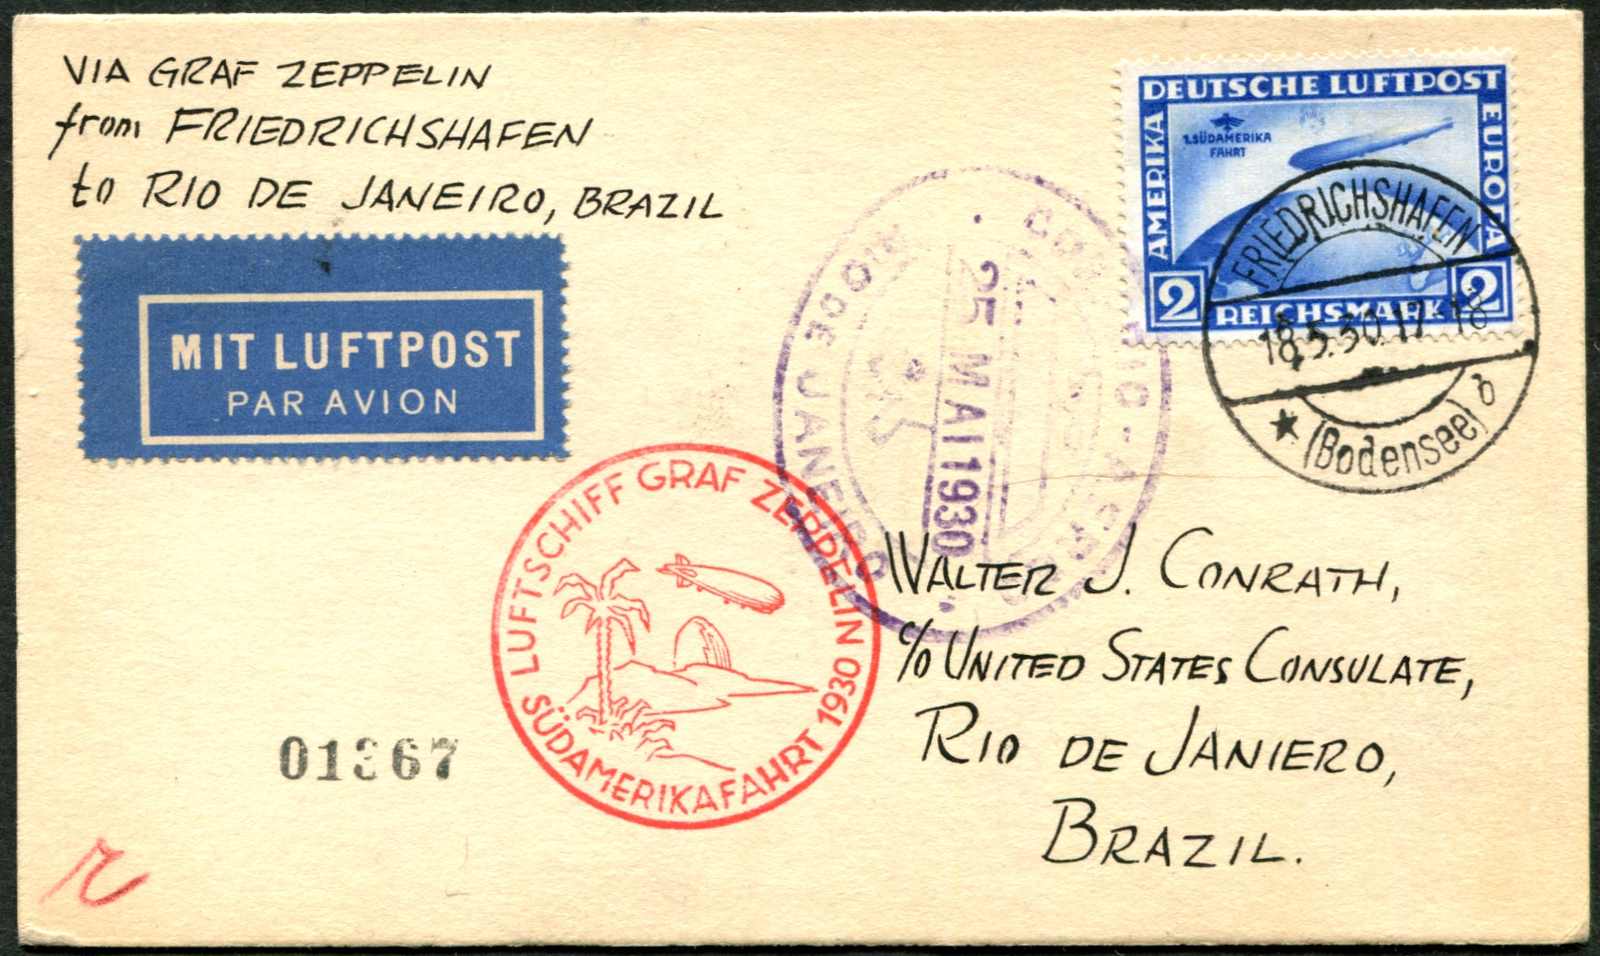 VIA GRAF ZEPPELIN
from FRIEDRICHSHAFEN
to RIO DE JANEIRO, BRAZIL
MIT LUFTPOST
PAR AVION
DEUTSCHE LUFTPOST
AMERIKA
EUROPA
1.SÜDAMERIKA
FAHRT
2
REICHSMARK
2
FRIEDRICHSHAFEN
18.5.30.17-18
(Bodensee) b
RIO DE JANEIRO
25 MAI 1930
LUFTSCHIFF GRAF ZEPPELIN
SÜDAMERIKAFAHRT 1930
WALTER J. CONRATH,
c/o UNITED STATES CONSULATE,
RIO DE JANIERO,
BRAZIL.
01367